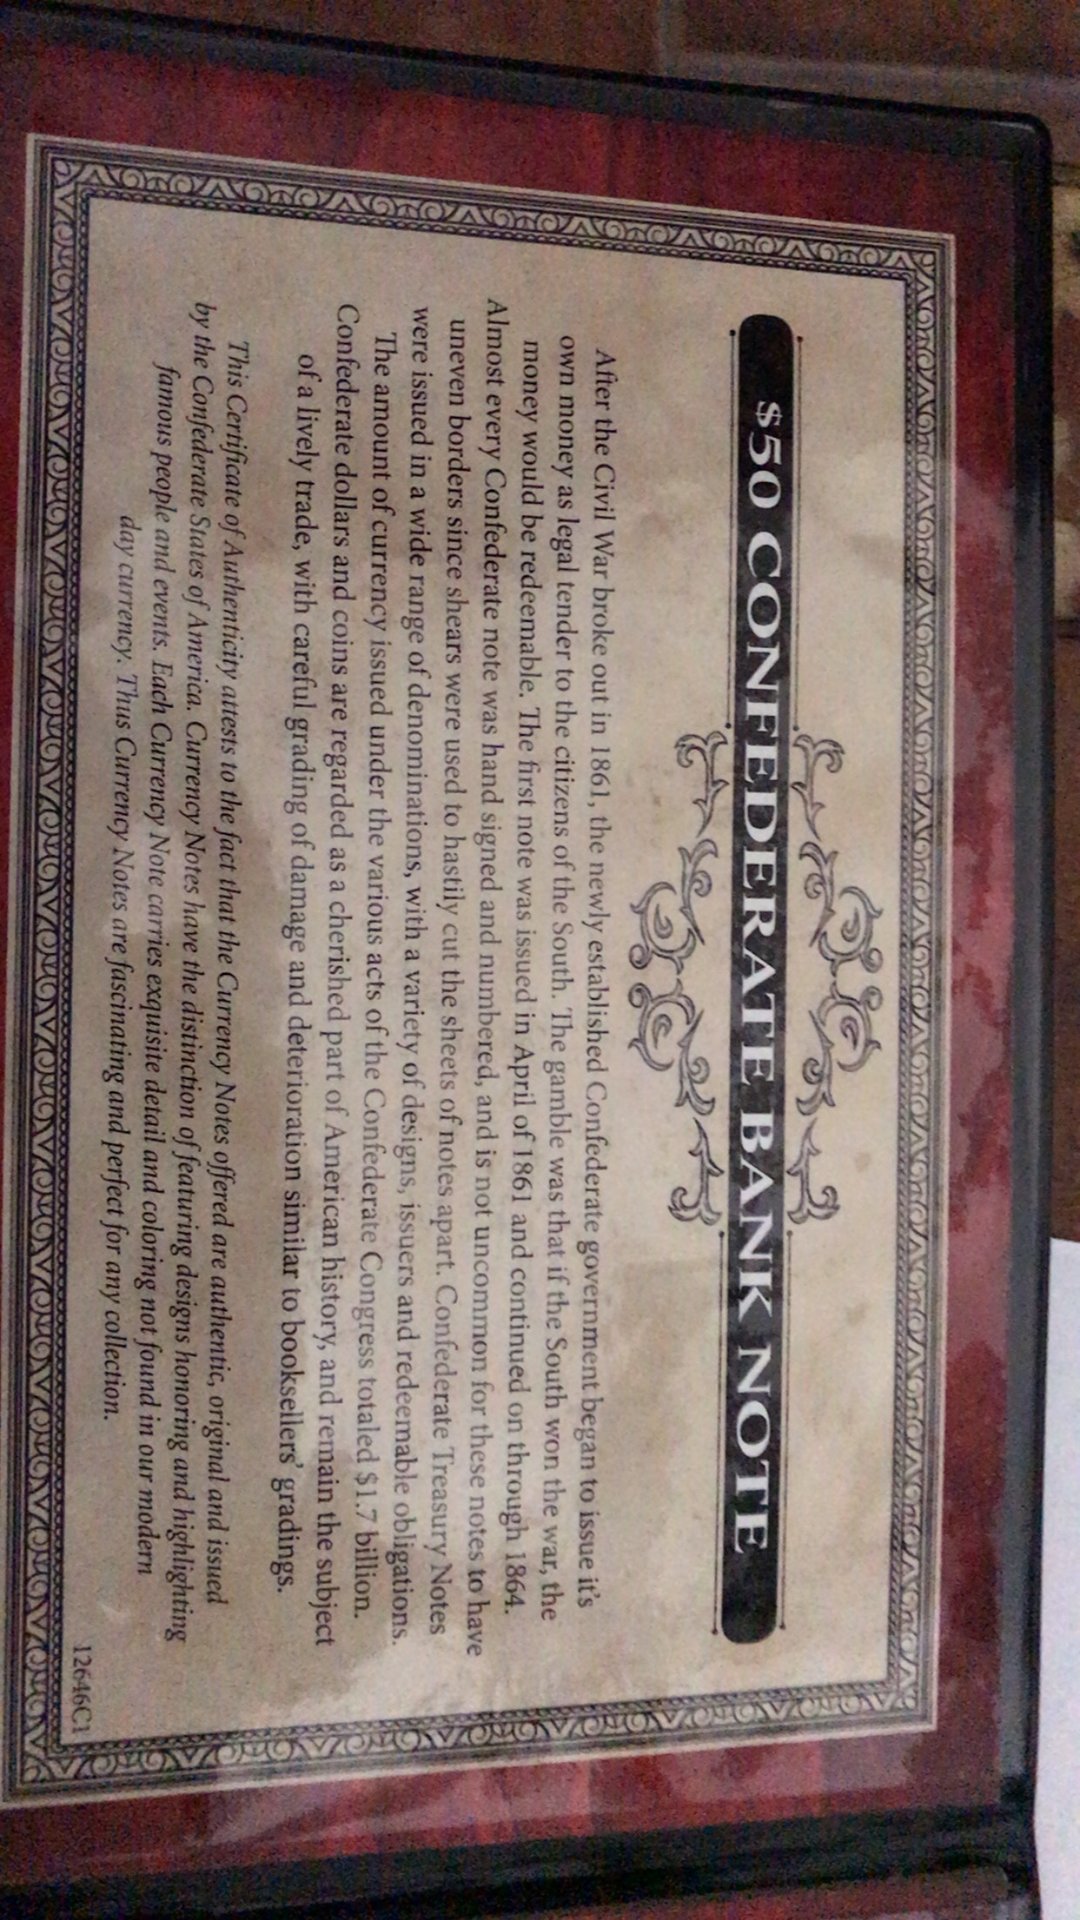 $50 CONFEDERATE BANK NOTE
After the Civil War broke out in 1861, the newly established Confederate government began to issue it's
own money as legal tender to the citizens of the South. The gamble was that if the South won the war, the
money would be redeemable. The first note was issued in April of 1861 and continued on through 1864.
Almost every Confederate note was hand signed and numbered, and is not uncommon for these notes to have
uneven borders since shears were used to hastily cut the sheets of notes apart. Confederate Treasury Notes
were issued in a wide range of denominations, with a variety of designs, issuers and redeemable obligations.
The amount of currency issued under the various acts of the Confederate Congress totaled $1.7 billion.
Confederate dollars and coins are regarded as a cherished part of American history, and remain the subject
of a lively trade, with careful grading of damage and deterioration similar to booksellers' gradings.
This Certificate of Authenticity attests to the fact that the Currency Notes offered are authentic, original and issued
by the Confederate States of America. Currency Notes have the distinction of featuring designs honoring and highlighting
famous people and events. Each Currency Note carries exquisite detail and coloring not found in our modern
day currency. Thus Currency Notes are fascinating and perfect for any collection.
12646C1